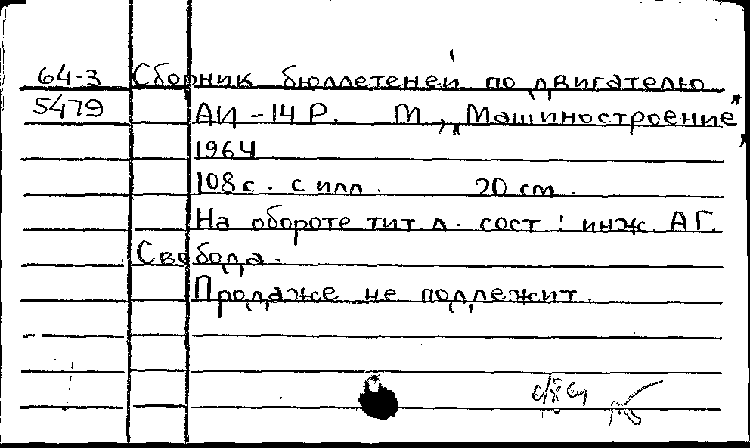 64-3 Сборник бюллетеней по двигателю
5479 АИ-14Р. М., „Машиностроение",
1964
108 с. с илл. 20 см.
На обороте тит л. сост: инж. А.Г.
Свобода.
Продаже не подлежит.